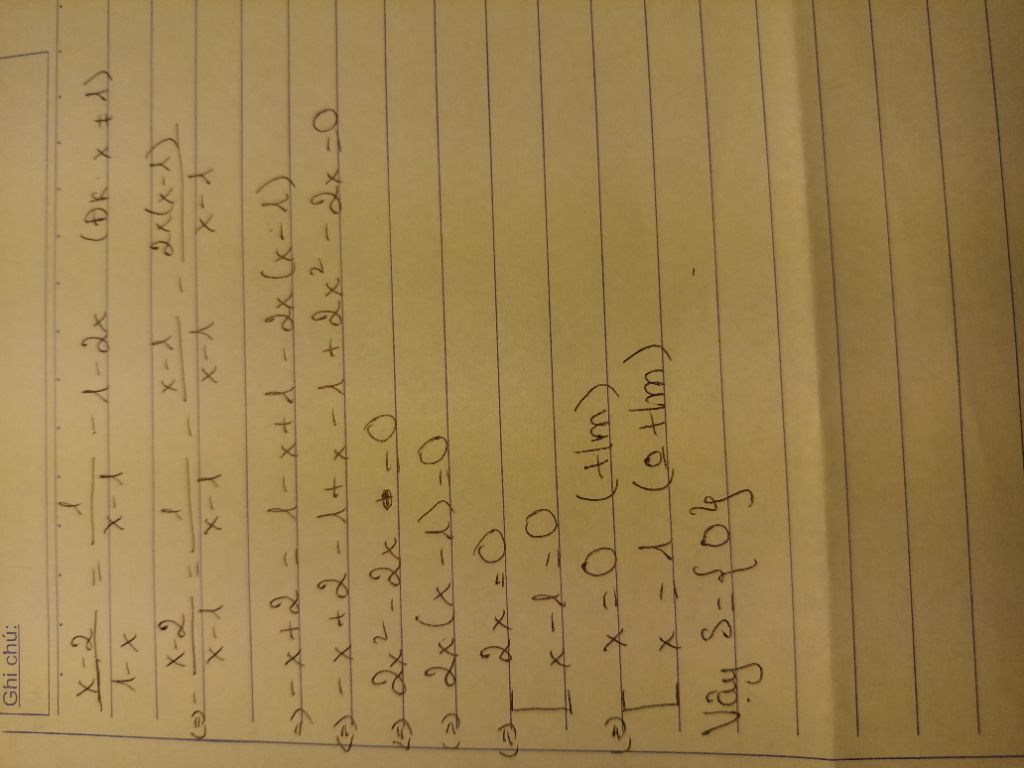 Ghi chú:
x-2/1-x = 1/x-1 - 1-2x (ĐK: x ≠ 1)
(=) - x-2/x-1 = 1/x-1 - x-1/x-1 - 2x(x-1)/x-1
=) -x+2 = 1-x+1-2x(x-1)
(=) -x+2-1+x-1+2x²-2x=0
(=) 2x²-2x=0
(=) 2x(x-1)=0
(=) [ 2x=0
x-1=0
(=) [ x=0 (tlm)
x=1 (0 tlm)
Vậy S={0}